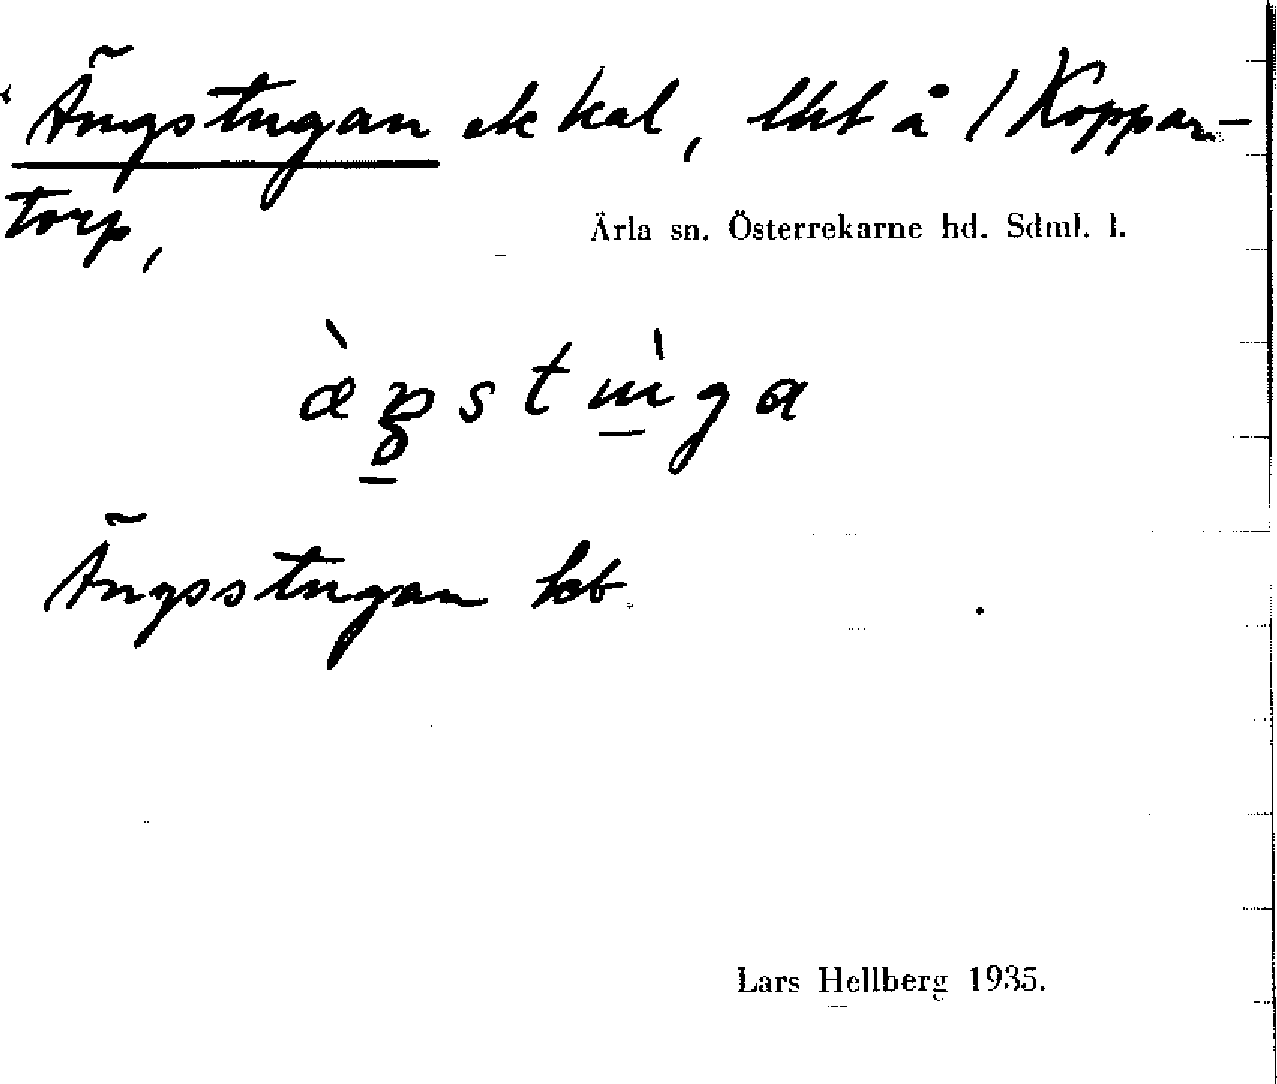 Ängstugan ek kal, lht å 1 Koppar-
torp,
Ärla sn. Österrekarne hd. Sdml. l.
Ängsstugan hb
Lars Hellberg 1935.